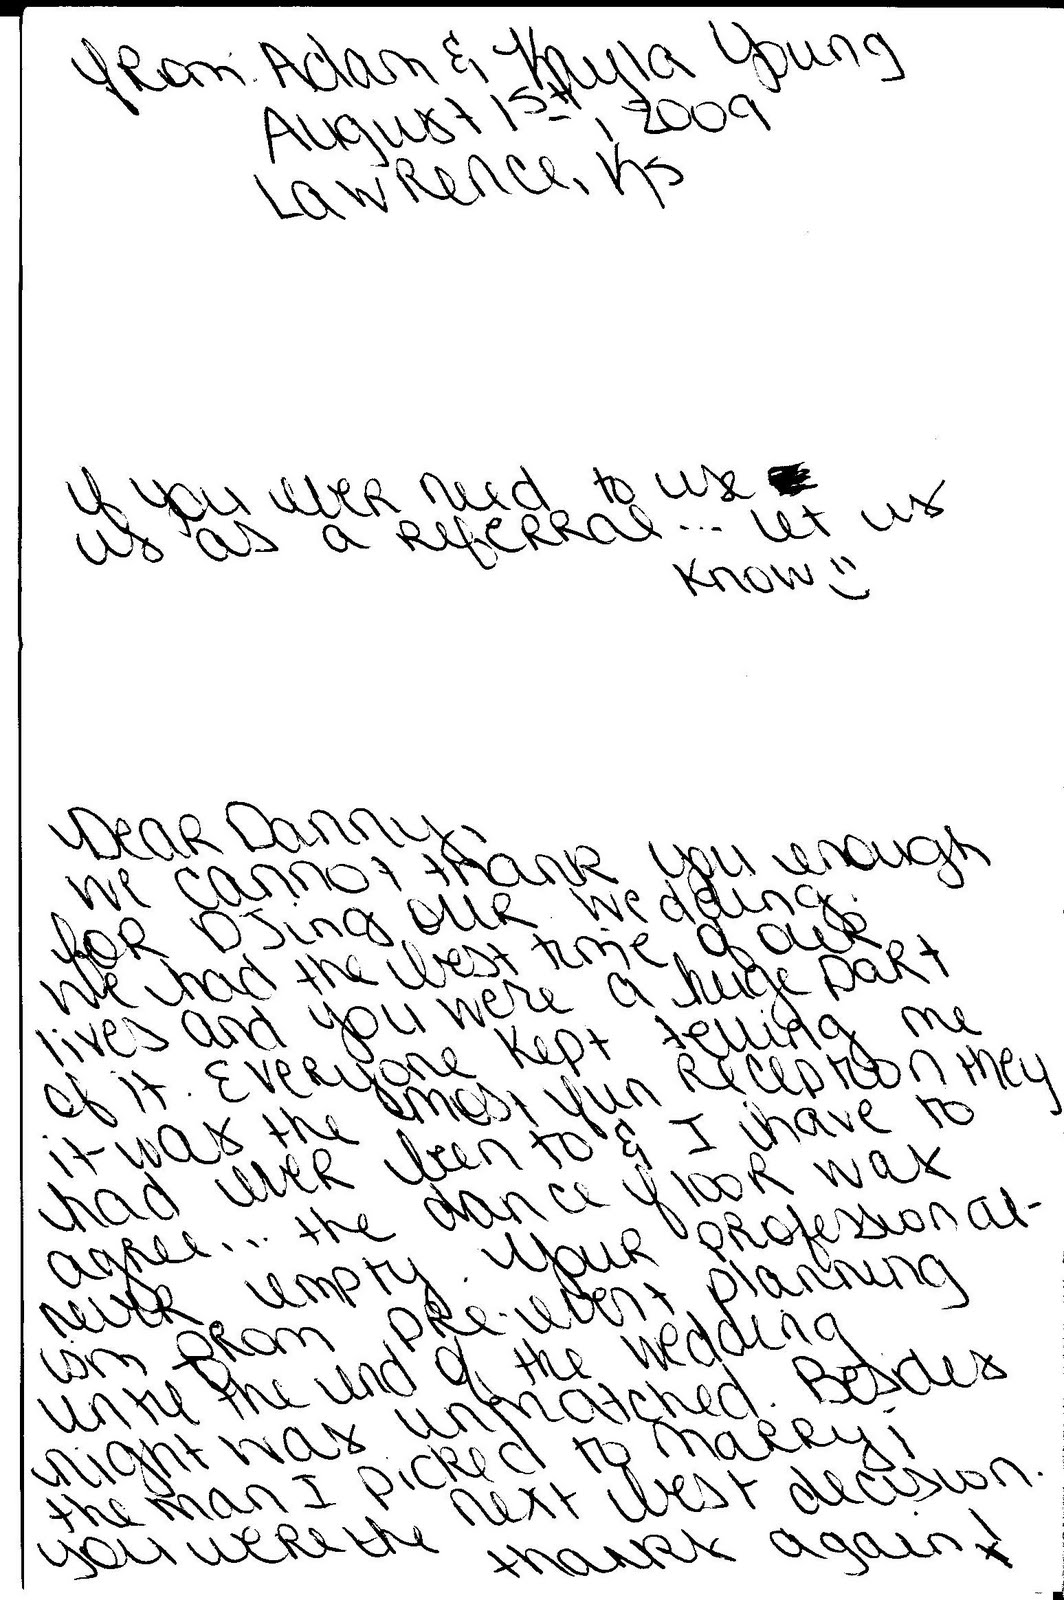 from: Adam & Kayla Young
August 15th, 2009
Lawrence, Ks
if you ever need to use
us as a referral... let us
know
Dear Danny,
We cannot thank you enough
for DJing our wedding.
We had the best time of our
lives and you were a huge part
of it. Everyone kept telling me
it was the most fun reception they
had ever been to & I have to
agree... the dance floor was
never empty. Your professional-
ism from pre-event planning
until the end of the wedding
night was unmatched. Besides
the man I picked to marry!
you were the next best decision.
thanks again!